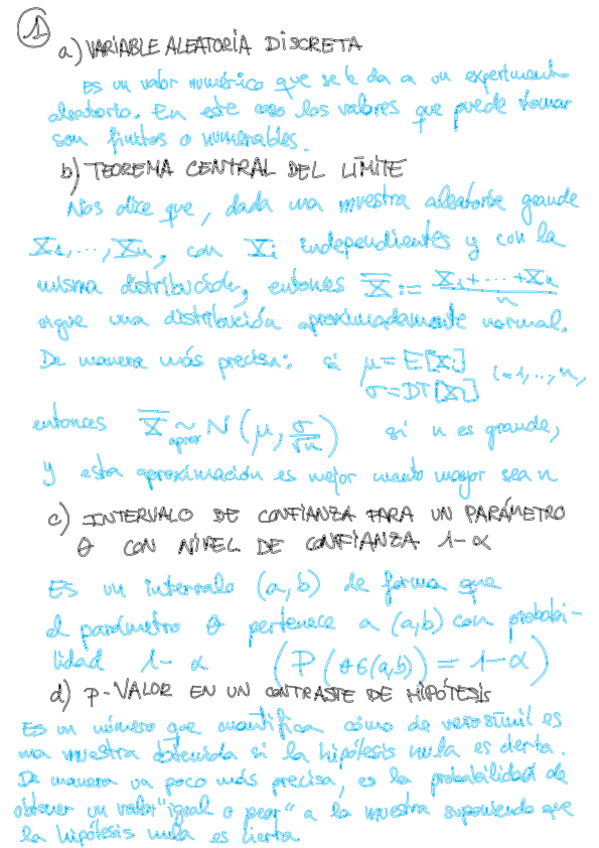 1
a) VARIABLE ALEATORIA DISCRETA
Es un valor numérico que se le da a un experimento
aleatorio. En este caso los valores que puede tomar
son finitos o numerables.
b) TEOREMA CENTRAL DEL LÍMITE
Nos dice que, dada una muestra aleatoria grande
X₁, ..., Xₙ, con Xᵢ independientes y con la
misma distribución, entonces X̄ := (X₁ + ... + Xₙ)/n
sigue una distribución aproximadamente normal.
De manera más precisa: si μ = E[Xᵢ]
σ = DT[Xᵢ] i=1, ..., n,
entonces X̄ ~ aprox N(μ, σ/√n) si n es grande,
y esta aproximación es mejor cuanto mayor sea n
c) INTERVALO DE CONFIANZA PARA UN PARÁMETRO
θ CON NIVEL DE CONFIANZA 1-α
Es un intervalo (a,b) de forma que
el parámetro θ pertenece a (a,b) con probabi-
lidad 1-α (P(θ∈(a,b)) = 1-α)
d) P-VALOR EN UN CONTRASTE DE HIPÓTESIS
Es un número que cuantifica cómo de verosímil es
una muestra obtenida si la hipótesis nula es cierta.
De manera un poco más precisa, es la probabilidad de
obtener un valor "igual o peor" a la muestra suponiendo que
la hipótesis nula es cierta.